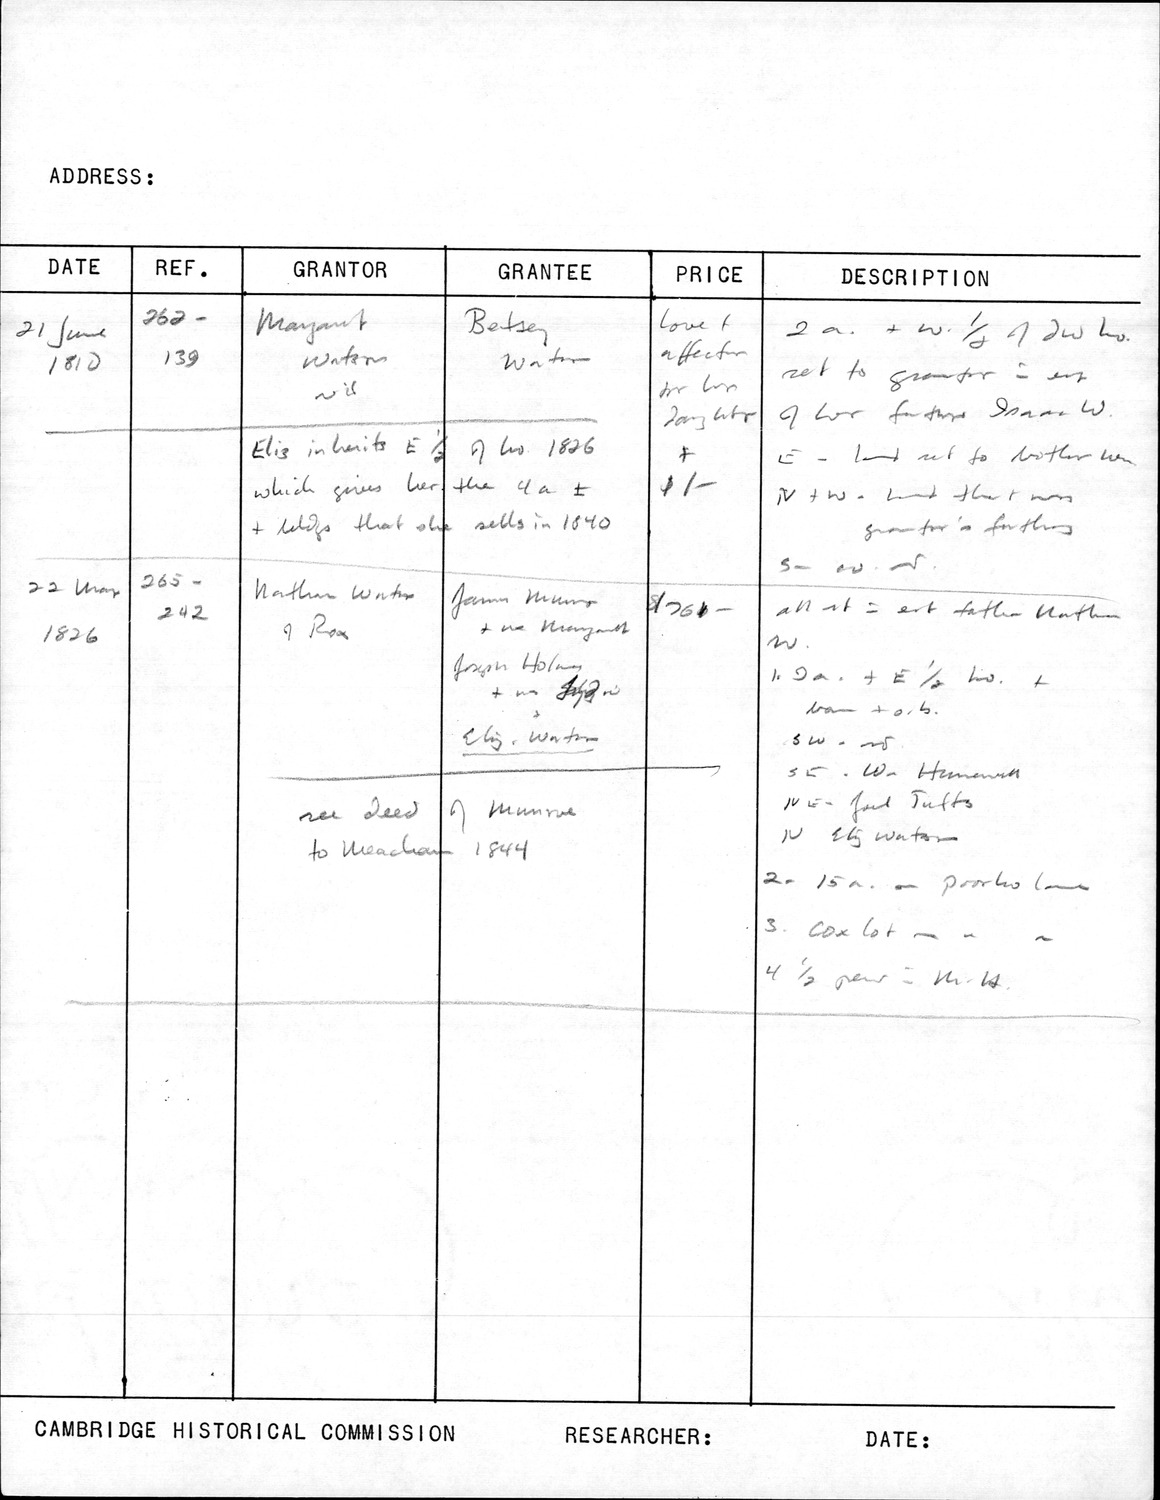 ADDRESS:
DATE REF. GRANTOR GRANTEE PRICE DESCRIPTION
21 June 1810
262-139
Margaret
Watson
wid
Betsey
Watson
love +
affection
for her
daughter
+
$1/-
2 a. + W. 1/2 of dw ho.
set to grantor = est
of her father Isaac W.
E - land set to mother
N + W - land that was
grantor's father's
S -
Eliz inherits E 1/2 of ho 1826
which gives her the 4 a ±
+ bldgs that she sells in 1840
22 Mar
1826
265-
242
Nathan Watson
of Rox
James Munro
+ wf Margaret
Joseph Holmes
+ wf
+
Eliz. Watson
$1261-
all rt = est father Nathan
W.
1. 2a. + E 1/2 ho. +
barn + o.b.
SW - rd
SE - Wm Hunnewell
NE - Joel Tufts
N Eliz Watson
2- 15 a. - poorho lane
3. Cox lot - " "
4 1/2 pew = M.H.
see deed of Munroe
to Meacham 1844
CAMBRIDGE HISTORICAL COMMISSION RESEARCHER: DATE: